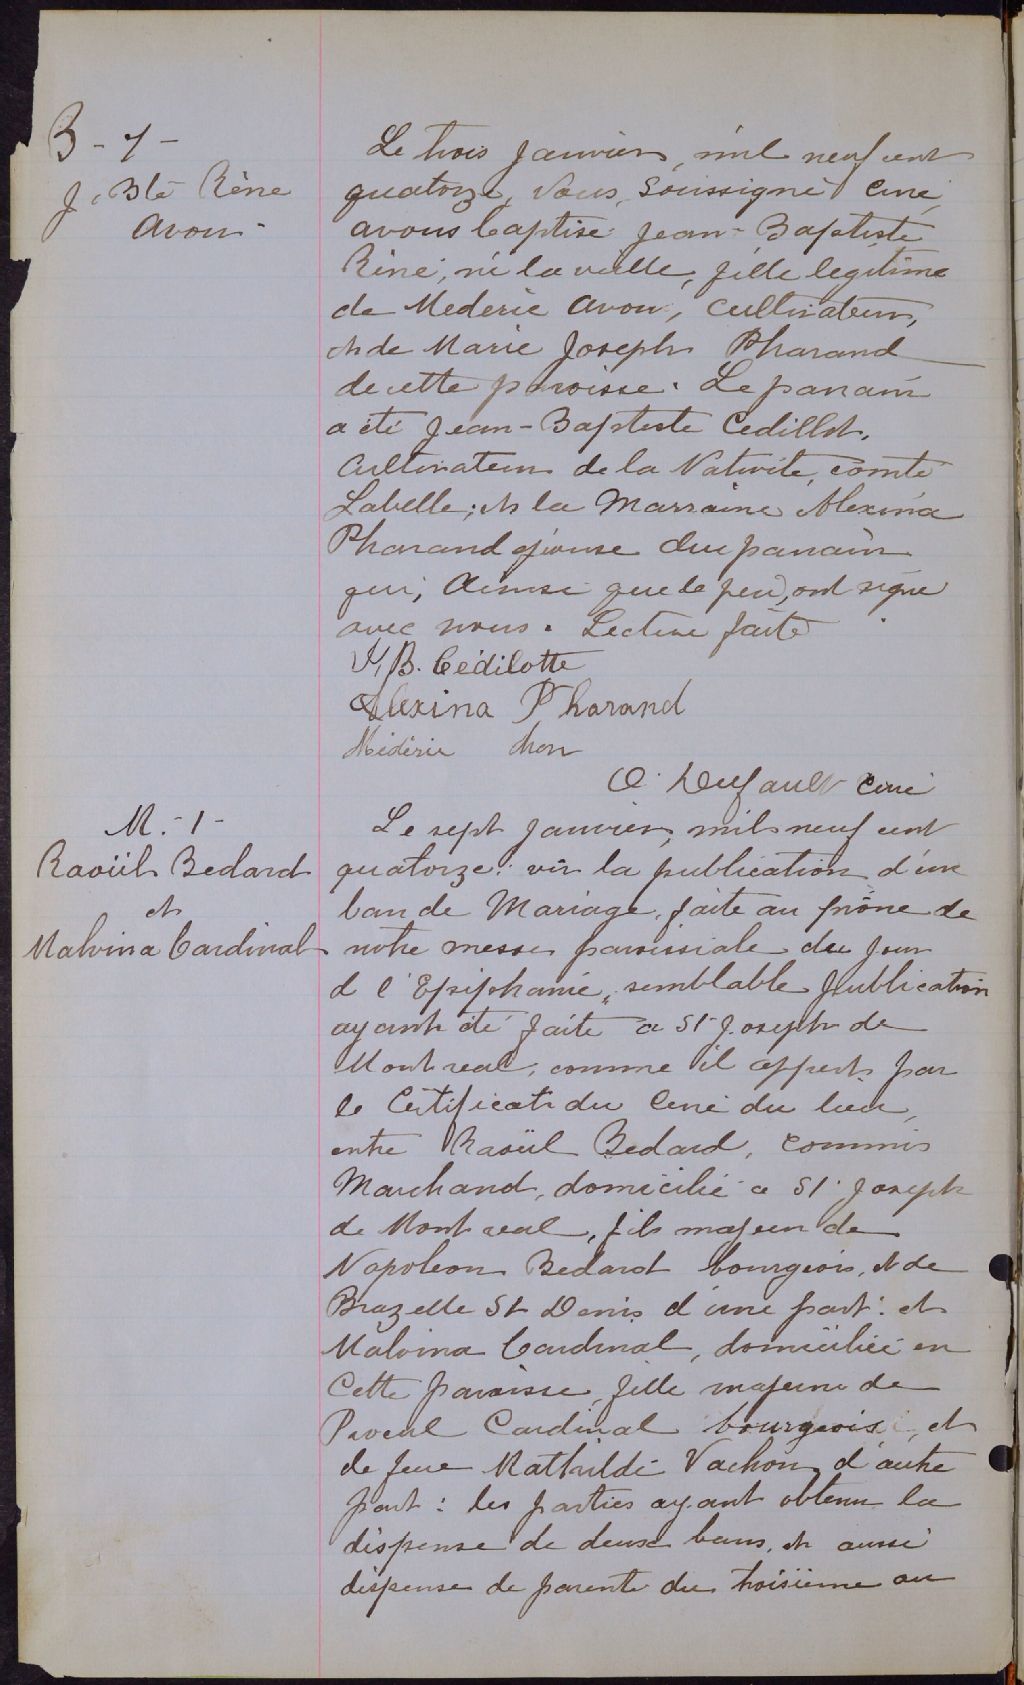 B - 1 -
J. Bte Réné
Avon -
Le trois Janvier, mil neuf cent
quatorze, Nous, Soussigné Curé,
avons baptisé Jean-Baptiste
Réné, né la veille, fille legitime
de Mederic Avon, Cultivateur,
et de Marie Joseph Pharand
de cette paroisse. Le parrain
a été Jean-Baptiste Cedillot,
Cultivateur de la Nativité, comté
Labelle; et la Marraine Alexina
Pharand épouse du parrain
qui, Ainsi que le père, ont signé
avec nous. Lecture faite
J. B. Cédilotte
Alexina Pharand
Médéric Avon
O. Dufault Curé
M. - 1 -
Raoül Bedard
et
Malvina Cardinal
Le sept Janvier, mil neuf cent
quatorze: vû la publication d'un
ban de Mariage, faite au prône de
notre messe paroissiale du Jour
d l'Epiphanie, semblable publication
ayant été faite a St Joseph de
Montreal, comme il appert par
le Certificat du Curé du lieu,
entre Raoül Bedard, Commis
Marchand, domicilié a St Joseph
de Montreal, fils majeur de
Napoleon Bedard bourgeois, et de
St Denis d'une part: et
Malvina Cardinal, domiciliée en
Cette paroisse, fille majeure de
Cardinal bourgeois, et
de feue Mathilde Vachon, d'autre
part: les parties ayant obtenu la
dispense de deux bans, et aussi
dispense de parenté du troisième au